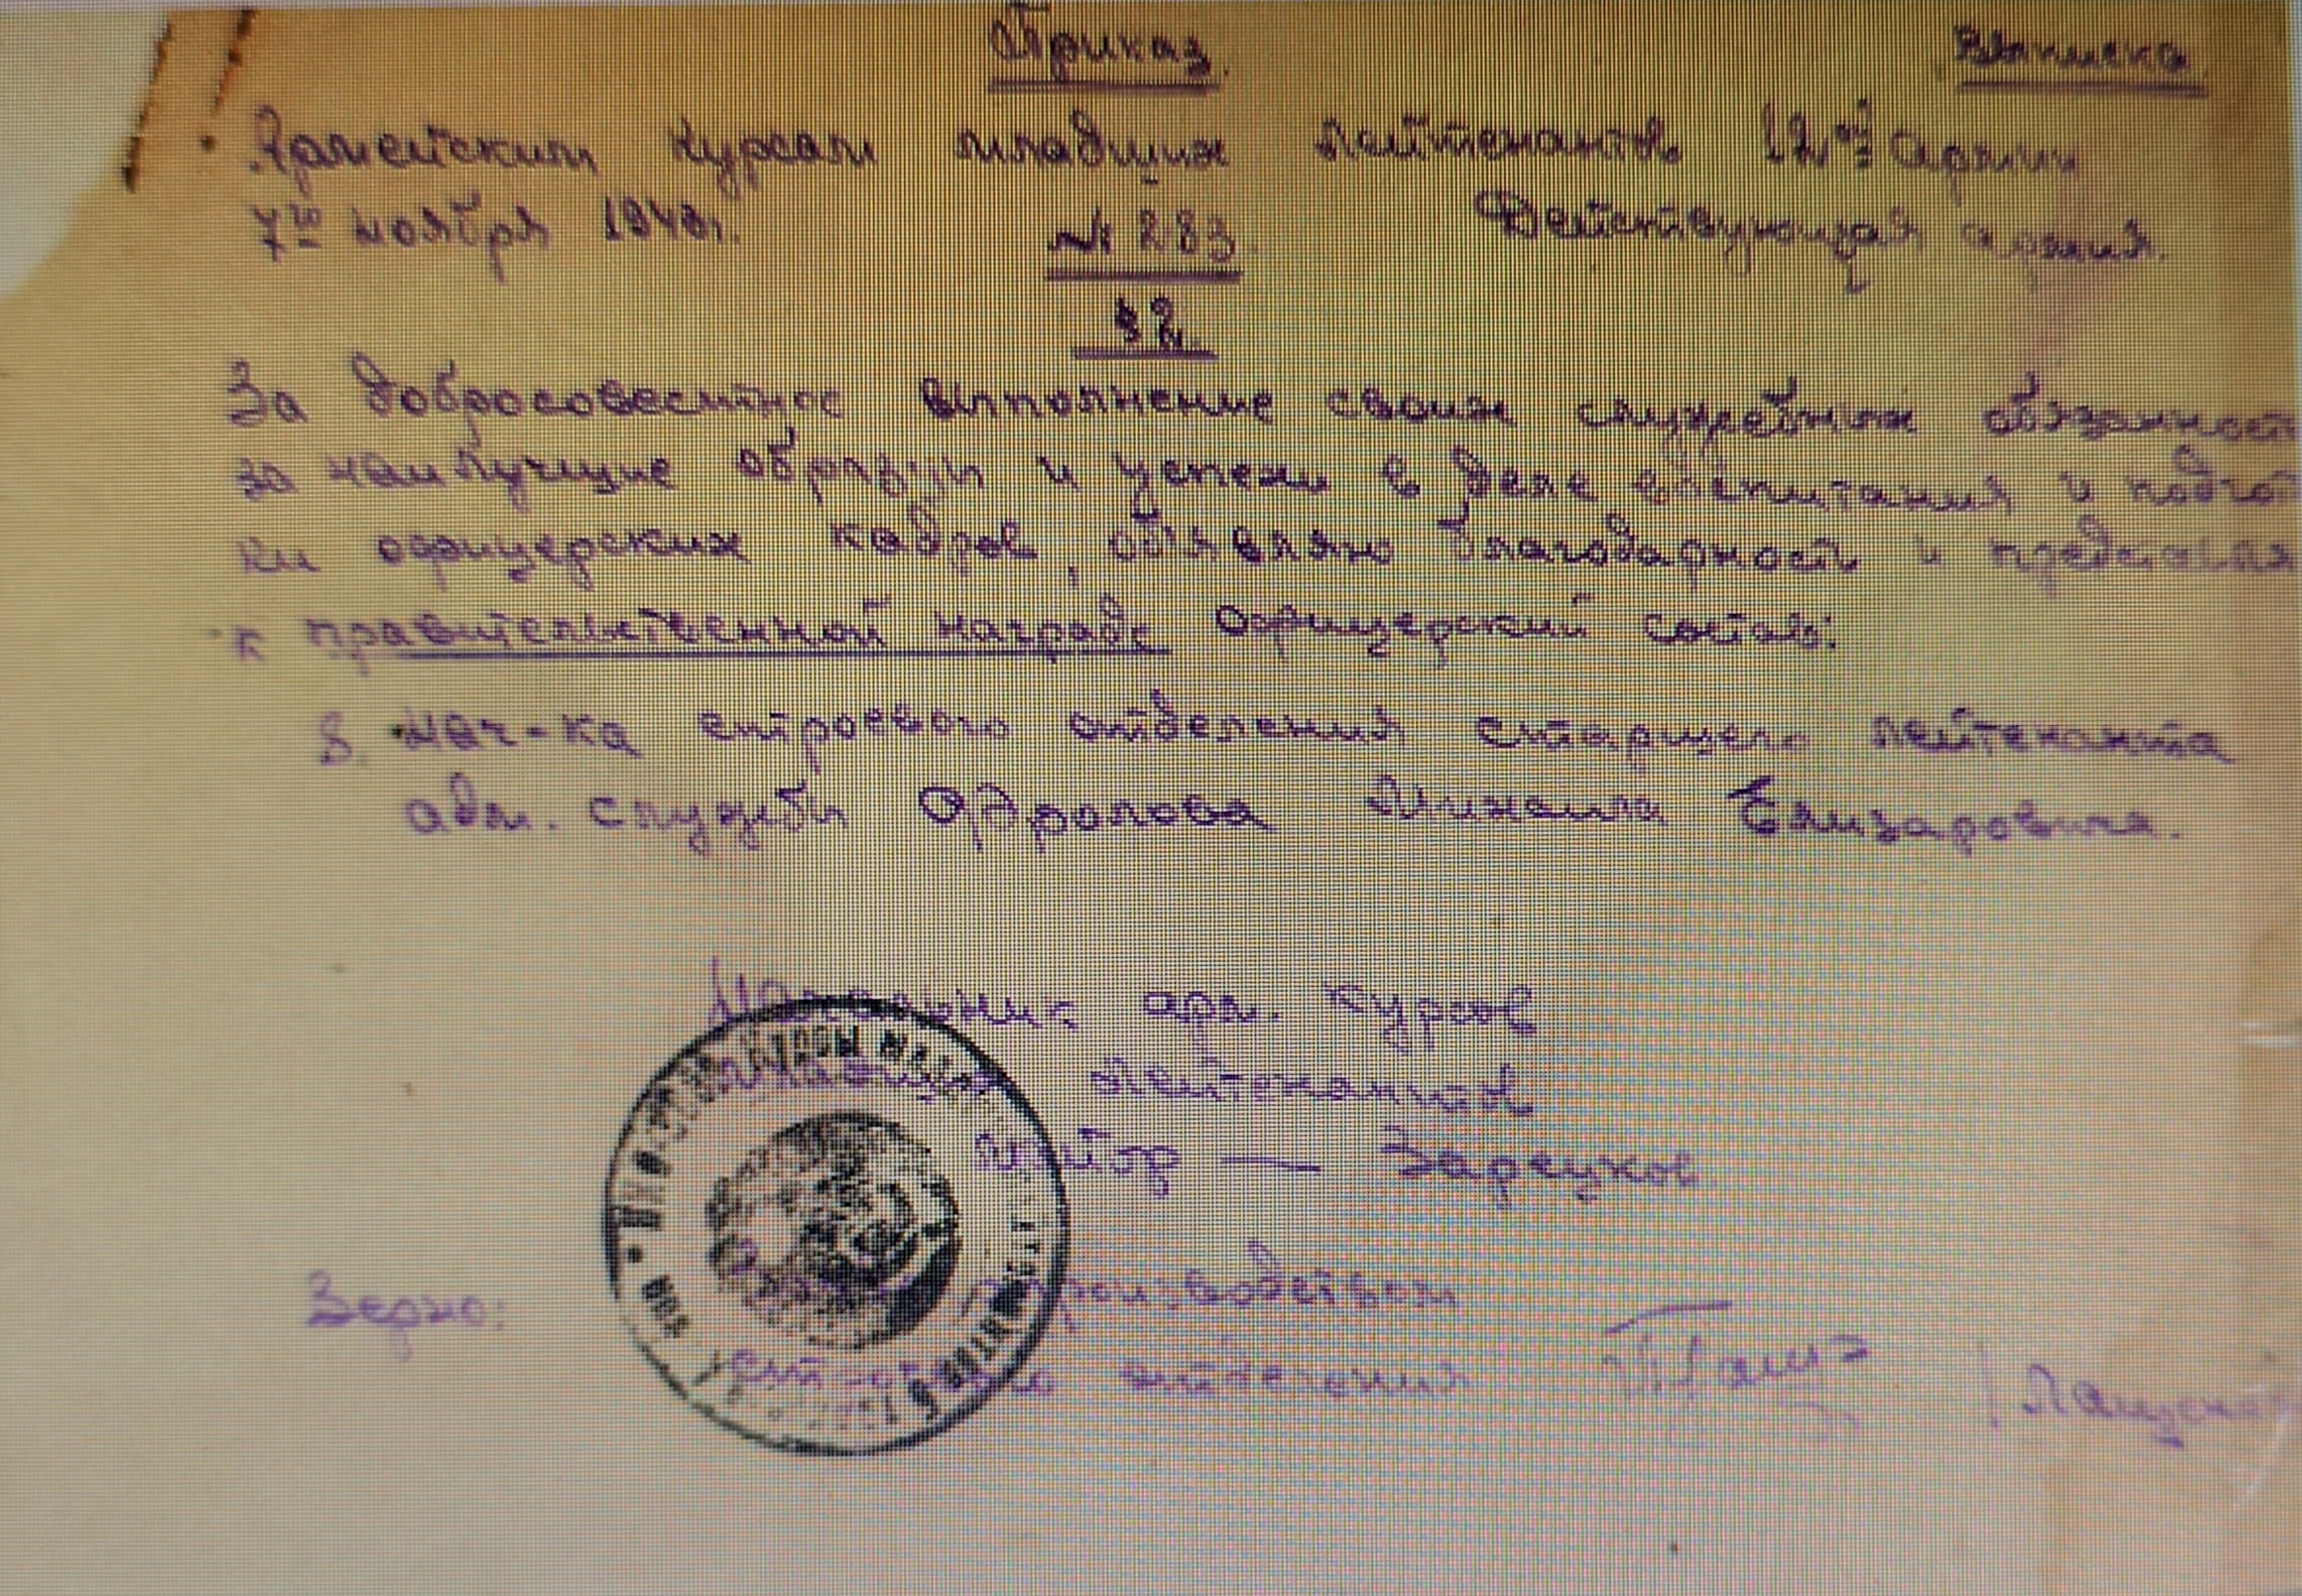 Приказ. Выписка
Армейским курсам младших лейтенантов 12ой армии
7го ноября 1943г. № 283 Действующая армия.
§ 2.
За добросовестное выполнение своих служебных обязанност
за наилучшие образцы и успехи в деле воспитания и подгот
ки офицерских кадров, объявляю благодарность и представля
к правительственной награде офицерский состав:
8. Нач-ка строевого отделения старшего лейтенанта
адм. службы Фролова Михаила Елизаровича.
Начальник арм. курсов
младших лейтенантов
майор —
Верно: производством
отделения